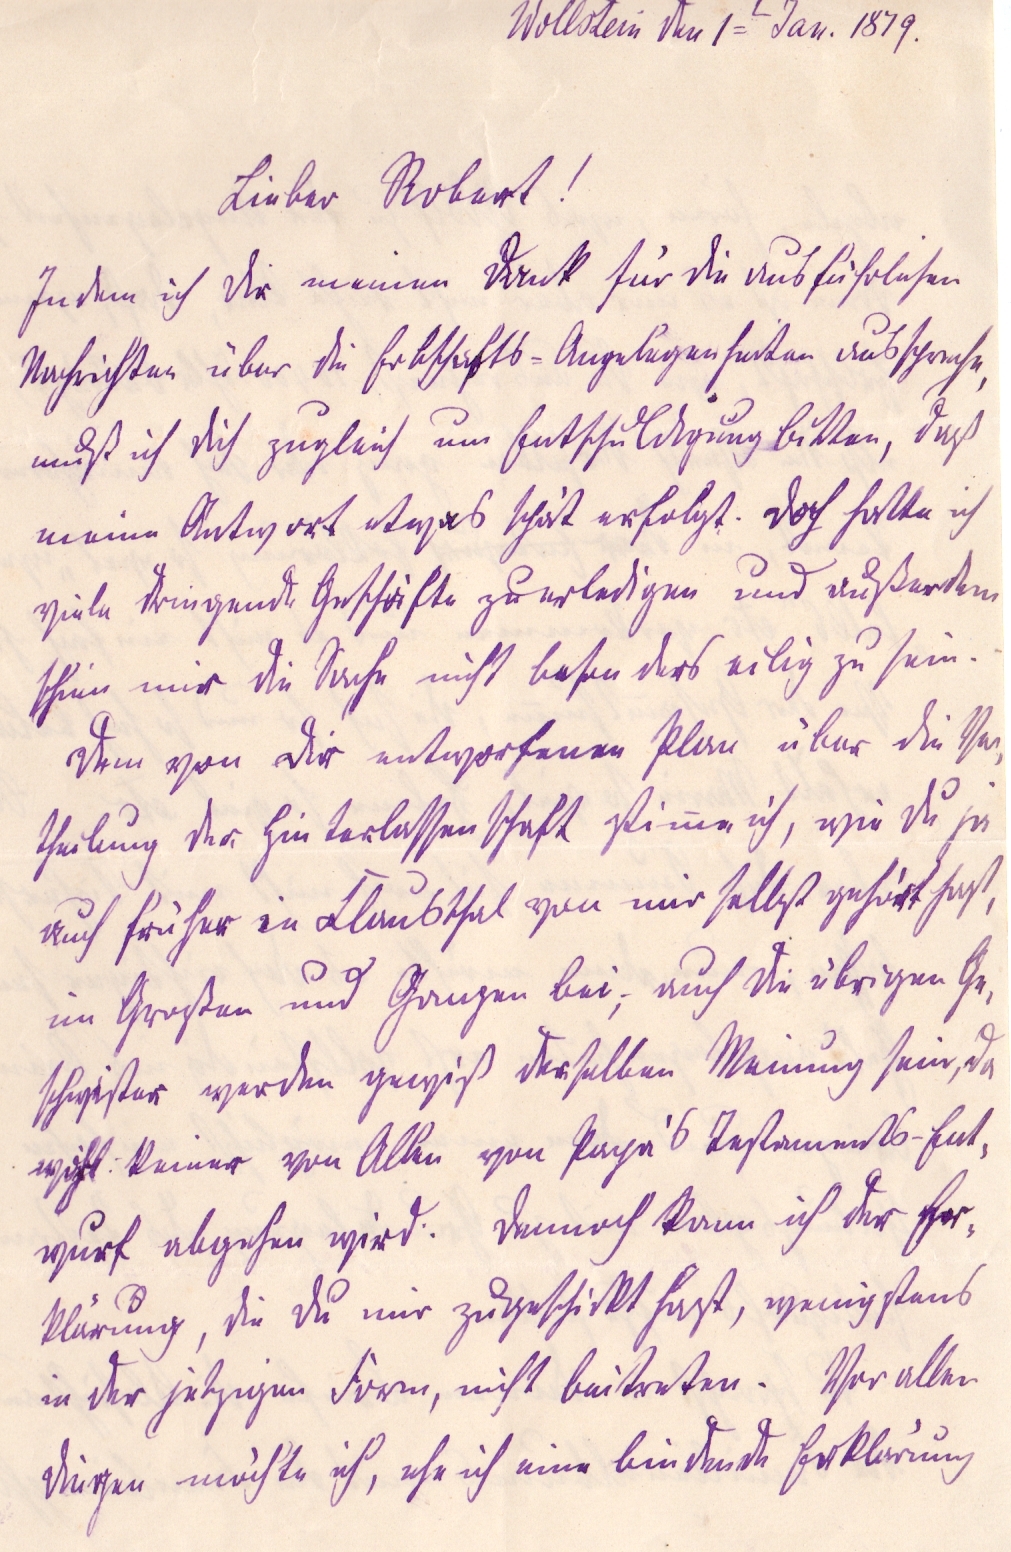 Wollstein den 1= t Jan. 1879.
Lieber Robert!
Indem ich Dir meinen Dank für die ausführlichen
Nachrichten über die Erbschafts-Angelegenheiten ausspreche,
muß ich Dich zugleich um Entschuldigung bitten, daß
meine Antwort etwas spät erfolgt. Doch hatte ich
viele dringende Geschäfte zu erledigen und außerdem
schien mir die Sache nicht besonders eilig zu sein.
Dem von Dir entworfenen Plan über die Ver-
theilung der Hinterlassenschaft stimme ich, wie Du ja
auch früher in Clausthal von mir selbst gehört hast,
im Großen und Ganzen bei; auch die übrigen Ge-
schwister werden gewiß derselben Meinung sein, da
keiner von Allen von Papa's Testaments-Ent-
wurf abgehen wird. Dennoch kann ich der Er-
klärung, die Du mir zugeschickt hast, wenigstens
in der jetzigen Form, nicht beitreten. Vor allen
Dingen möchte ich, ehe ich eine bindende Erklärung